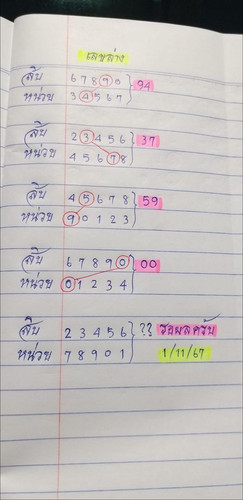 เลขล่าง
สิบ 6 7 8 9 0 } 94
หน่วย 3 4 5 6 7
สิบ 2 3 4 5 6 } 37
หน่วย 4 5 6 7 8
สิบ 4 5 6 7 8 } 59
หน่วย 9 0 1 2 3
สิบ 6 7 8 9 0 } 00
หน่วย 0 1 2 3 4
สิบ 2 3 4 5 6 } ?? รอผลครับ
หน่วย 7 8 9 0 1 1/11/67